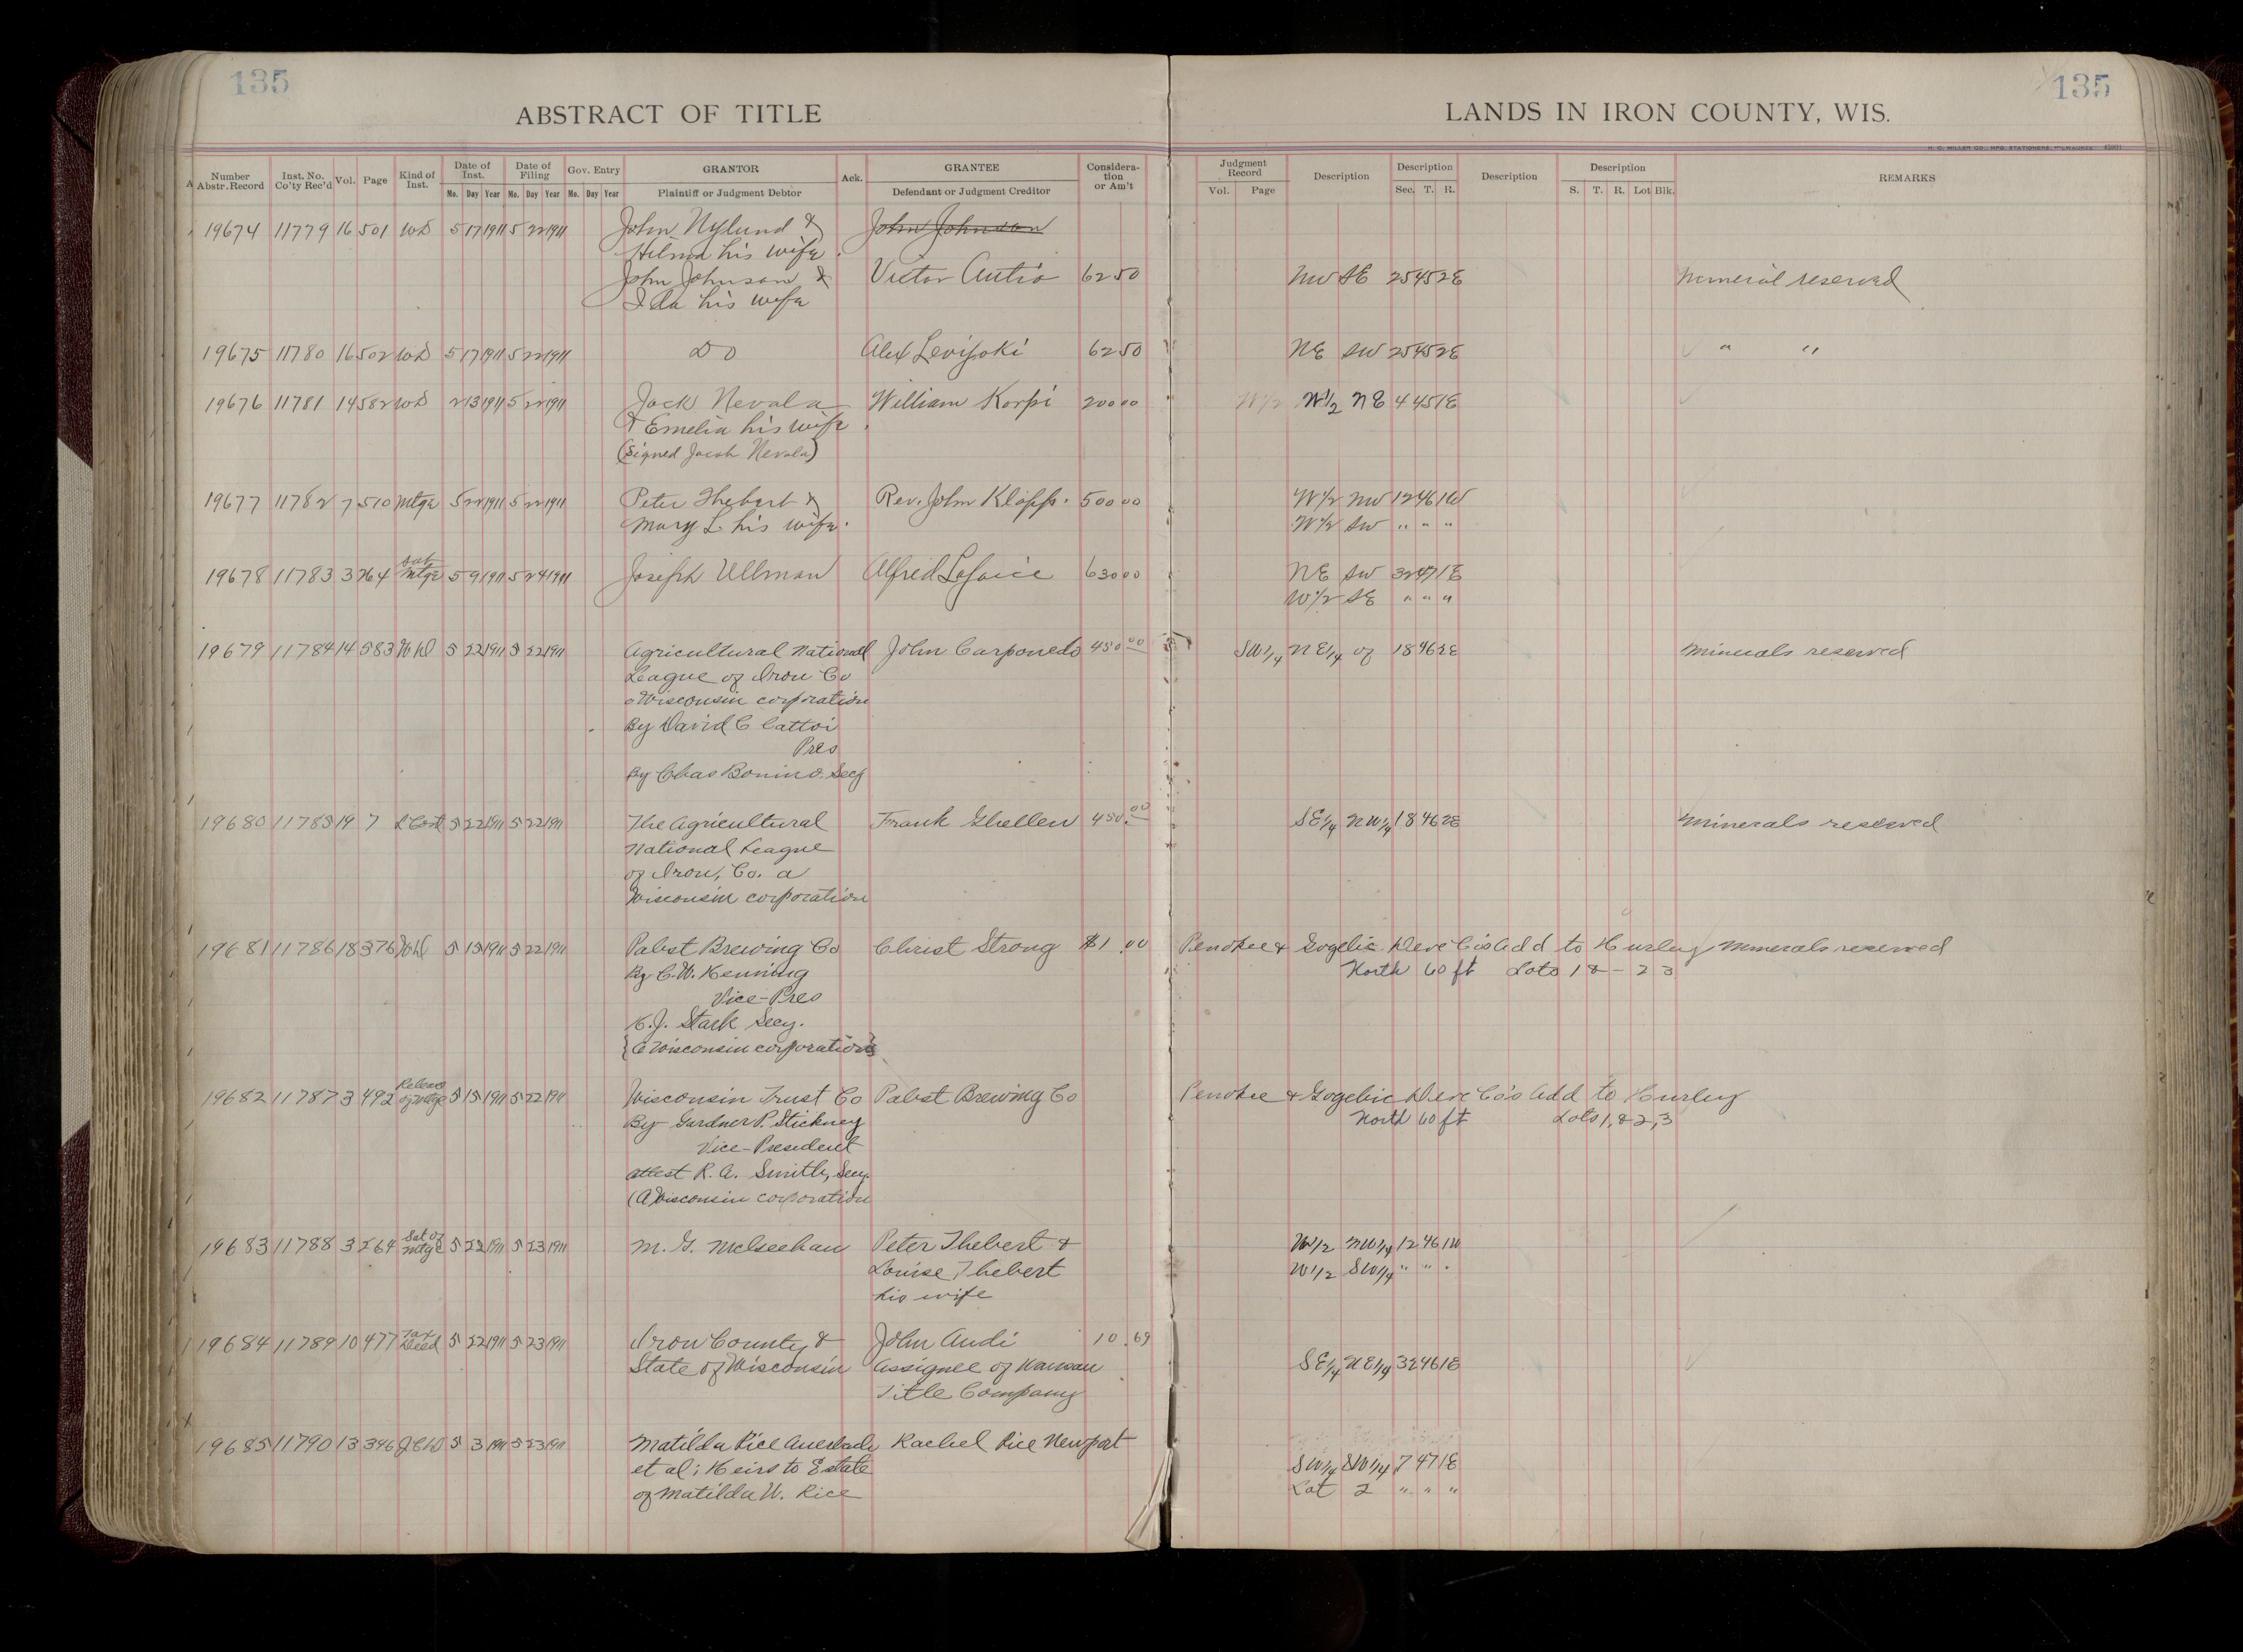 135
135
ABSTRACT OF TITLE
LANDS IN IRON COUNTY, WIS.
H. C. MILLER CO., MFG. STATIONERS, MILWAUKEE
Number Abstr. Record Inst. No. Co'ty Rec'd Vol. Page Kind of Inst. Date of Inst. Mo. Day Year Date of Filing Mo. Day Year Gov. Entry Mo. Day Year GRANTOR Plaintiff or Judgment Debtor Ack. GRANTEE Defendant or Judgment Creditor Considera-tion or Am't Judgment Record Vol. Page Description Description Sec. T. R. Description Description S. T. R. Lot Blk. REMARKS
19674 11779 16 501 WD 5 17 1911 5 22 1911 John Nylund & John Johnson
Hilma his wife.
John Johnson & Victor Autio 62 50 NW SE 25 45 2E Mineral reserved
Ida his wife
19675 11780 16 502 WD 5 17 1911 5 22 1911 DO Alex Levijoki 62 50 NE SW 25 45 2E " "
19676 11781 14 582 WD 2 13 1911 5 22 1911 Jack Nevala William Korpi 200 00 W1/2 W1/2 NE 4 45 1E
& Emelia his wife.
(Signed Jacob Nevala)
19677 11782 7 510 Mtge 5 22 1911 5 22 1911 Peter Thebert & Rev. John Klopp. 500 00 W1/2 NW 12 46 1W
Mary L. his wife. W1/2 SW " " "
19678 11783 3 264 Sat Mtge 5 9 1911 5 24 1911 Joseph Ullman Alfred Lajoice 630 00 NE SW 32 47 1E
W1/2 SE " " "
19679 11784 14 583 WD 5 22 1911 5 22 1911 Agricultural National John Carponedo 450 00 SW1/4 NE1/4 of 18 46 2E Minerals reserved
League of Iron Co
a Wisconsin corporation
By David C Cattoi
Pres
By Chas Bonino. Secy
19680 11785 19 7 L Cont 5 22 1911 5 22 1911 The Agricultural Frank Ghellen 450.00 SE1/4 NW1/4 18 46 2E Minerals reserved
National League
of Iron, Co. a
Wisconsin corporation
19681 11786 18 376 WD 5 15 1911 5 22 1911 Pabst Brewing Co Christ Strong $1.00 Penokee & Gogebic Deve Co's Add to Hurley Minerals reserved
By C. W. Henning North 60 ft Lots 1 & - 2 3
Vice-Pres
H. J. Stark Secy.
{A Wisconsin corporation}
19682 11787 3 492 Release of Mtge 5 15 1911 5 22 1911 Wisconsin Trust Co Pabst Brewing Co Penokee & Gogebic Deve Co's Add to Hurley
By Gardner P. Stickney North 60 ft Lots 1, & 2, 3
Vice-President
attest R. A. Smith, Secy.
(A Wisconsin corporation
19683 11788 3 264 Sat of Mtge 5 22 1911 5 23 1911 M. G. McGeehan Peter Thebert & W1/2 NW1/4 12 46 1W
Louise Thebert W1/2 SW1/4 " " "
his wife
19684 11789 10 477 Tax Deed 5 22 1911 5 23 1911 Iron County & John Audi 10.69
State of Wisconsin Assignee of Wausau SE1/4 NE1/4 32 46 1E
Title Company
19685 11790 13 346 5 3 1911 5 23 1911 Matilda Rice Auerbach Rachel Rice Newport
et al; Heirs to Estate SW1/4 SW1/4 7 47 1E
of Matilda W. Rice Lot 2 " " "